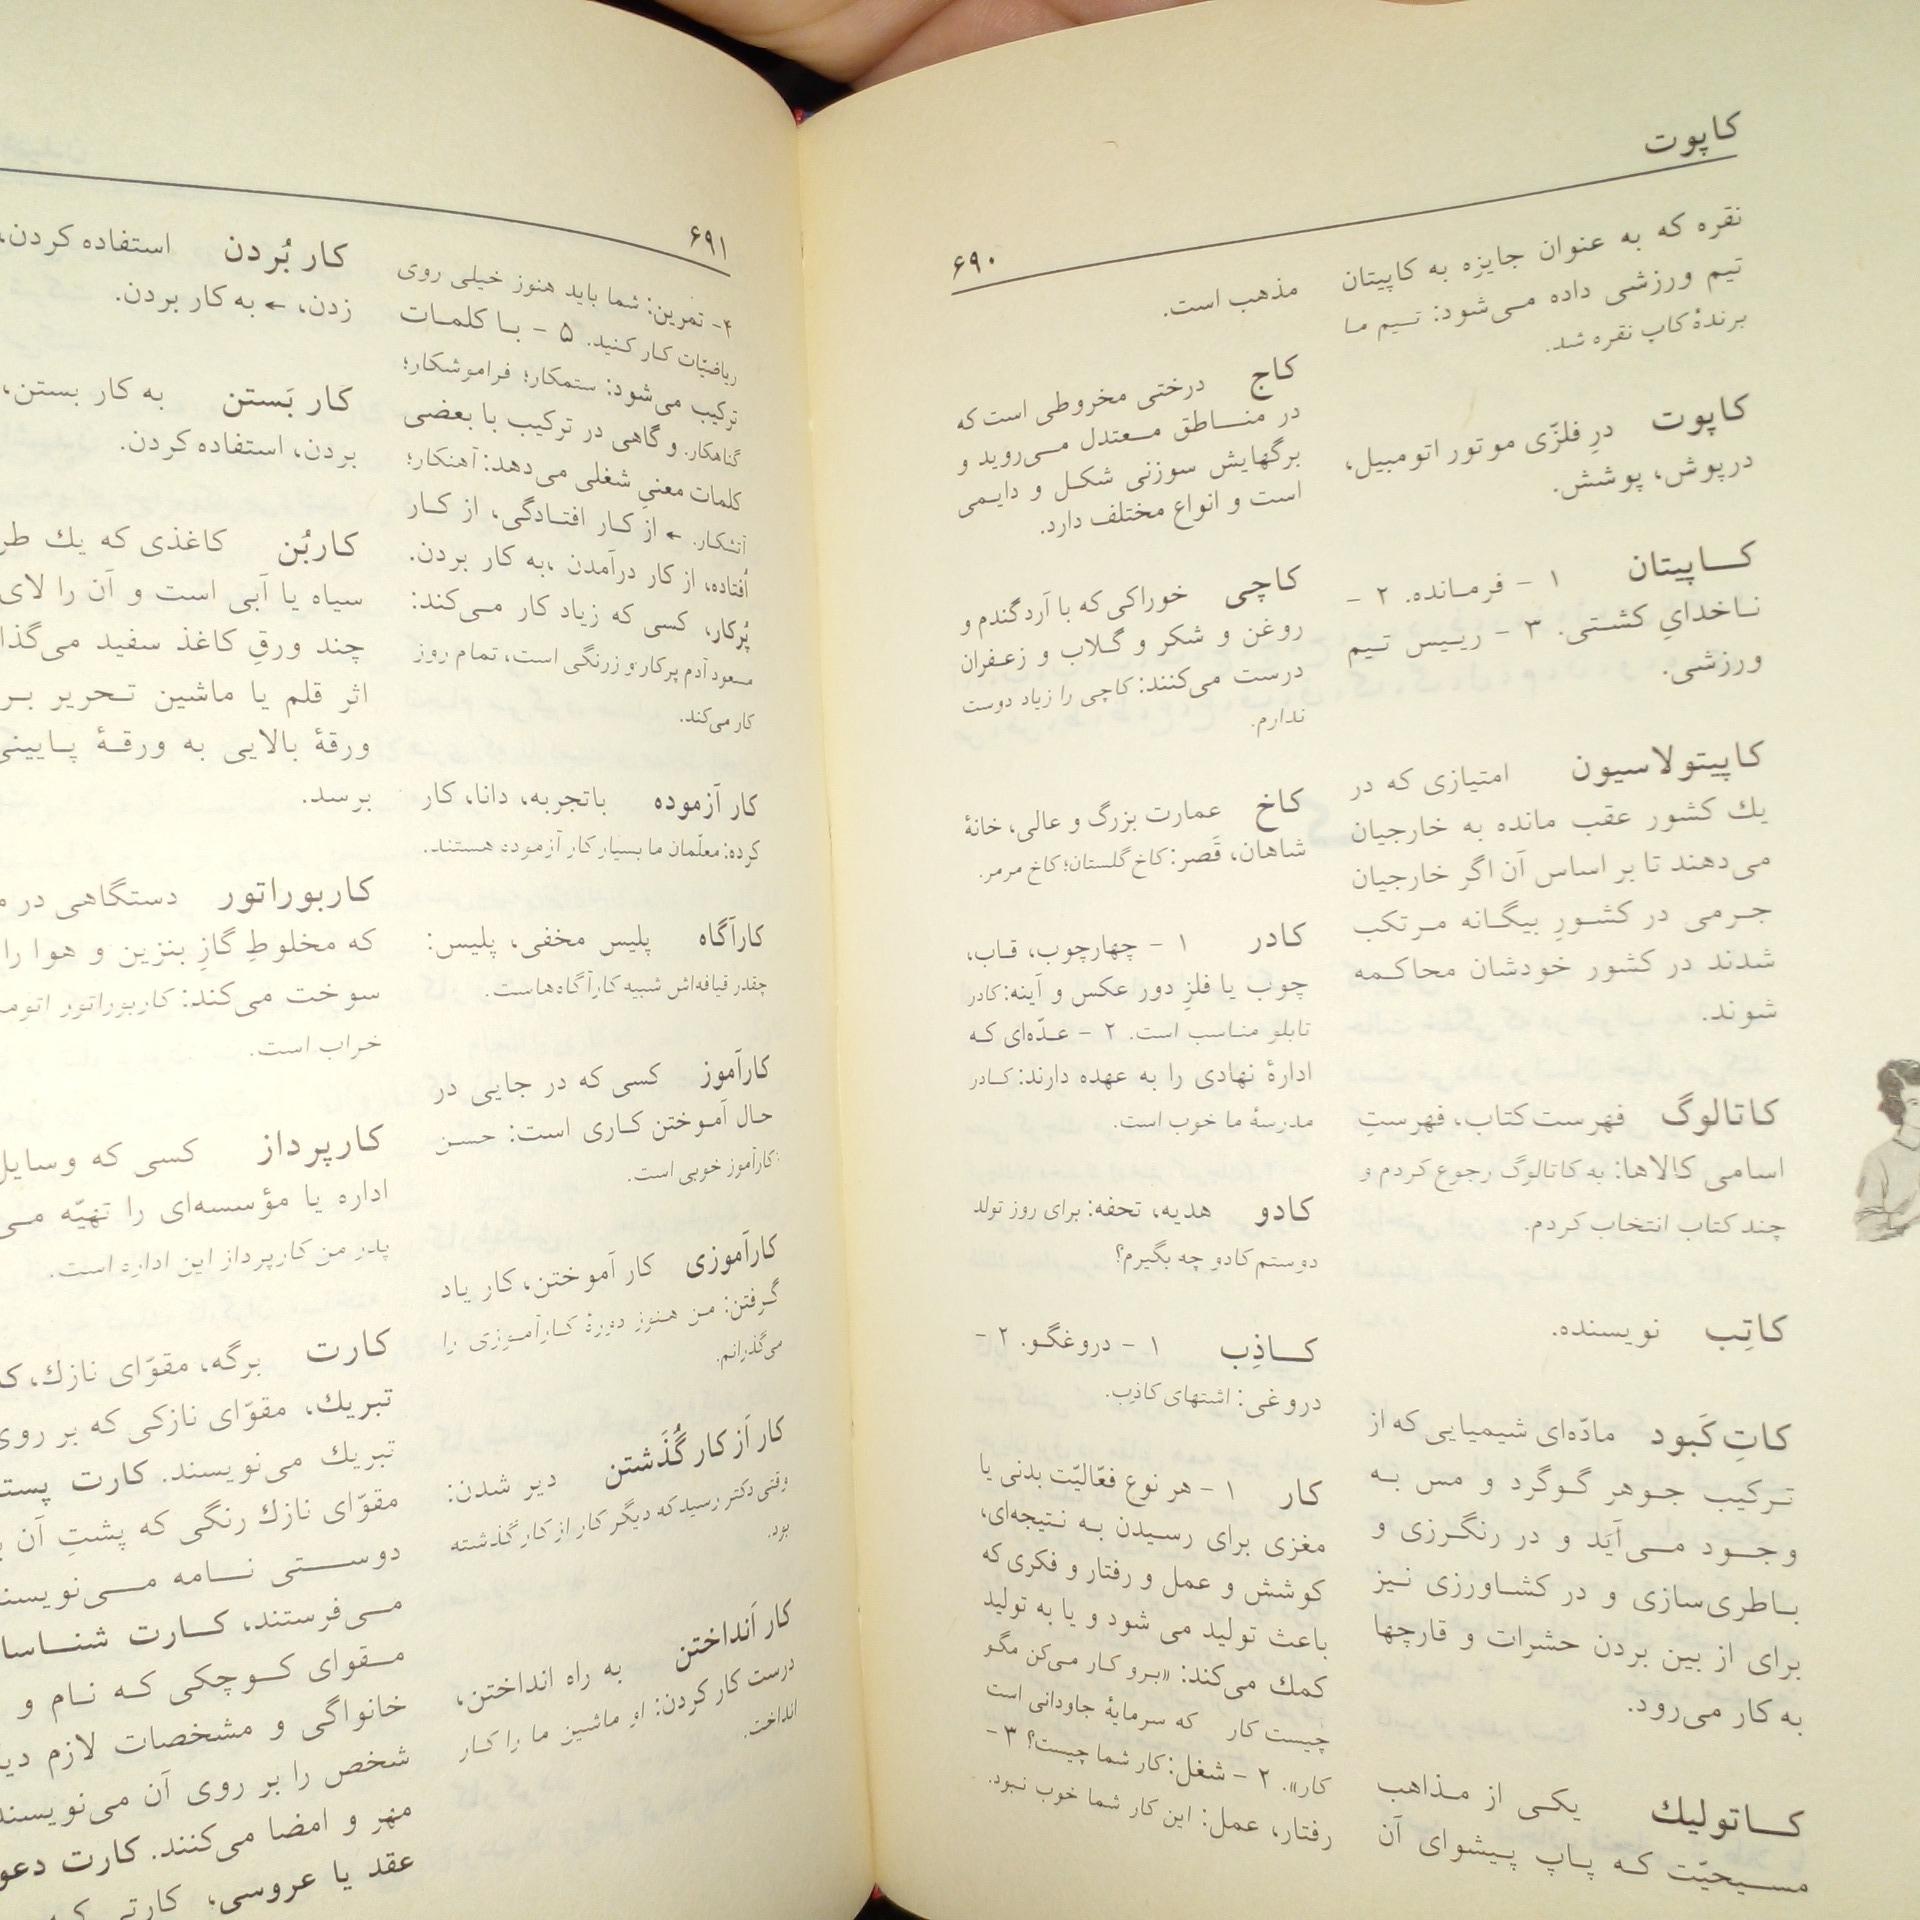 کاپوت
۶۹۰
نقره که به عنوان جایزه به کاپیتان
تیم ورزشی داده می‌شود: تیم ما
برندهٔ کاپ نقره شد.
کاپوت درِ فلزّی موتور اتومبیل،
درپوش، پوشش.
کاپیتان ۱ - فرمانده. ۲ -
ناخدایِ کشتی. ۳ - رییس تیم
ورزشی.
کاپیتولاسیون امتیازی که در
یك کشور عقب مانده به خارجیان
می‌دهند تا بر اساس آن اگر خارجیان
جرمی در کشورِ بیگانه مرتکب
شدند در کشور خودشان محاکمه
شوند.
کاتالوگ فهرست کتاب، فهرستِ
اسامی کالاها: به کاتالوگ رجوع کردم و
چند کتاب انتخاب کردم.
کاتِب نویسنده.
کاتِ کَبود مادّه‌ای شیمیایی که از
ترکیب جوهر گوگرد و مس به
وجود می‌آیَد و در رنگرزی و
باطری‌سازی و در کشاورزی نیز
برای از بین بردن حشرات و قارچها
به کار می‌رود.
کاتولیك یکی از مذاهب
مسیحیّت که پاپ پیشوای آن
مذهب است.
کاج درختی مخروطی است که
در مناطق معتدل می‌روید و
برگهایش سوزنی شکل و دایمی
است و انواع مختلف دارد.
کاچی خوراکی که با آرد گندم و
روغن و شکر و گلاب و زعفران
درست می‌کنند: کاچی را زیاد دوست
ندارم.
کاخ عمارت بزرگ و عالی، خانهٔ
شاهان، قَصر: کاخ گلستان؛ کاخ مرمر.
کادر ۱ - چهارچوب، قاب،
چوب یا فلزِ دور عکس و آینه: کادر
تابلو مناسب است. ۲ - عدّه‌ای که
ادارهٔ نهادی را به عهده دارند: کادر
مدرسهٔ ما خوب است.
کادو هدیه، تحفه: برای روز تولد
دوستم کادو چه بگیرم؟
کاذِب ۱ - دروغگو. ۲ -
دروغی: اشتهای کاذِب.
کار ۱ - هر نوع فعّالیّت بدنی یا
مغزی برای رسیدن به نتیجه‌ای،
کوشش و عمل و رفتار و فکری که
باعث تولید می شود و یا به تولید
کمك می‌کند: «برو کار می‌کن مگو
چیست کار که سرمایهٔ جاودانی است
کار». ۲ - شغل: کار شما چیست؟ ۳ -
رفتار، عمل: این کار شما خوب نبود.
۶۹۱
۴- تمرین: شما باید هنوز خیلی روی
ریاضیّات کار کنید. ۵ - با کلمات
ترکیب می‌شود: ستمکار؛ فراموشکار؛
گناهکار. و گاهی در ترکیب با بعضی
کلمات معنیِ شغلی می‌دهد: آهنکار؛
آتشکار. ← از کار افتادگی، از کار
اُفتاده، از کار درآمدن ،به کار بردن.
پُرکار، کسی که زیاد کار می‌کند:
مسعود آدم پرکار و زرنگی است، تمام روز
کار می‌کند.
کار آزموده باتجربه، دانا، کار
کرده: معلّمان ما بسیار کار آزموده هستند.
کارآگاه پلیس مخفی، پلیس:
چقدر قیافه‌اش شبیه کارآگاه‌هاست.
کارآموز کسی که در جایی در
حال آموختن کاری است: حسن
کارآموز خوبی است.
کارآموزی کار آموختن، کار یاد
گرفتن: من هنوز دورهٔ کارآموزی را
می‌گذرانم.
کار اَز کار گُذَشتن دیر شدن:
وقتی دکتر رسید که دیگر کار از کار گذشته
بود.
کار اَنداختن به راه انداختن،
درست کار کردن: او ماشین ما را کار
انداخت.
کار بُردن استفاده کردن،
زدن، ← به کار بردن.
کار بَستن به کار بستن،
بردن، استفاده کردن.
کاربُن کاغذی که یك
سیاه یا آبی است و آن را لای
چند ورقِ کاغذ سفید
اثر قلم یا ماشین تحریر
ورقهٔ بالایی به ورقهٔ
برسد.
کاربوراتور دستگاهی در
که مخلوطِ گازِ بنزین و هوا را
سوخت می‌کند: کاربوراتور
خراب است.
کارپرداز کسی که وسایل
اداره یا مؤسسه‌ای را تهیّه
پدر من کارپرداز این اداره است.
کارت برگه، مقوّای نازك،
تبریك، مقوّای نازکی که بر روی
تبریك می‌نویسند. کارت
مقوّای نازك رنگی که پشتِ آن
دوستی نامه
می‌فرستند، کارت
مقوای کوچکی که نام و
خانواگی و مشخصات لازم
شخص را بر روی آن
مهر و امضا می‌کنند. کارت
عقد یا عروسی، کارتی